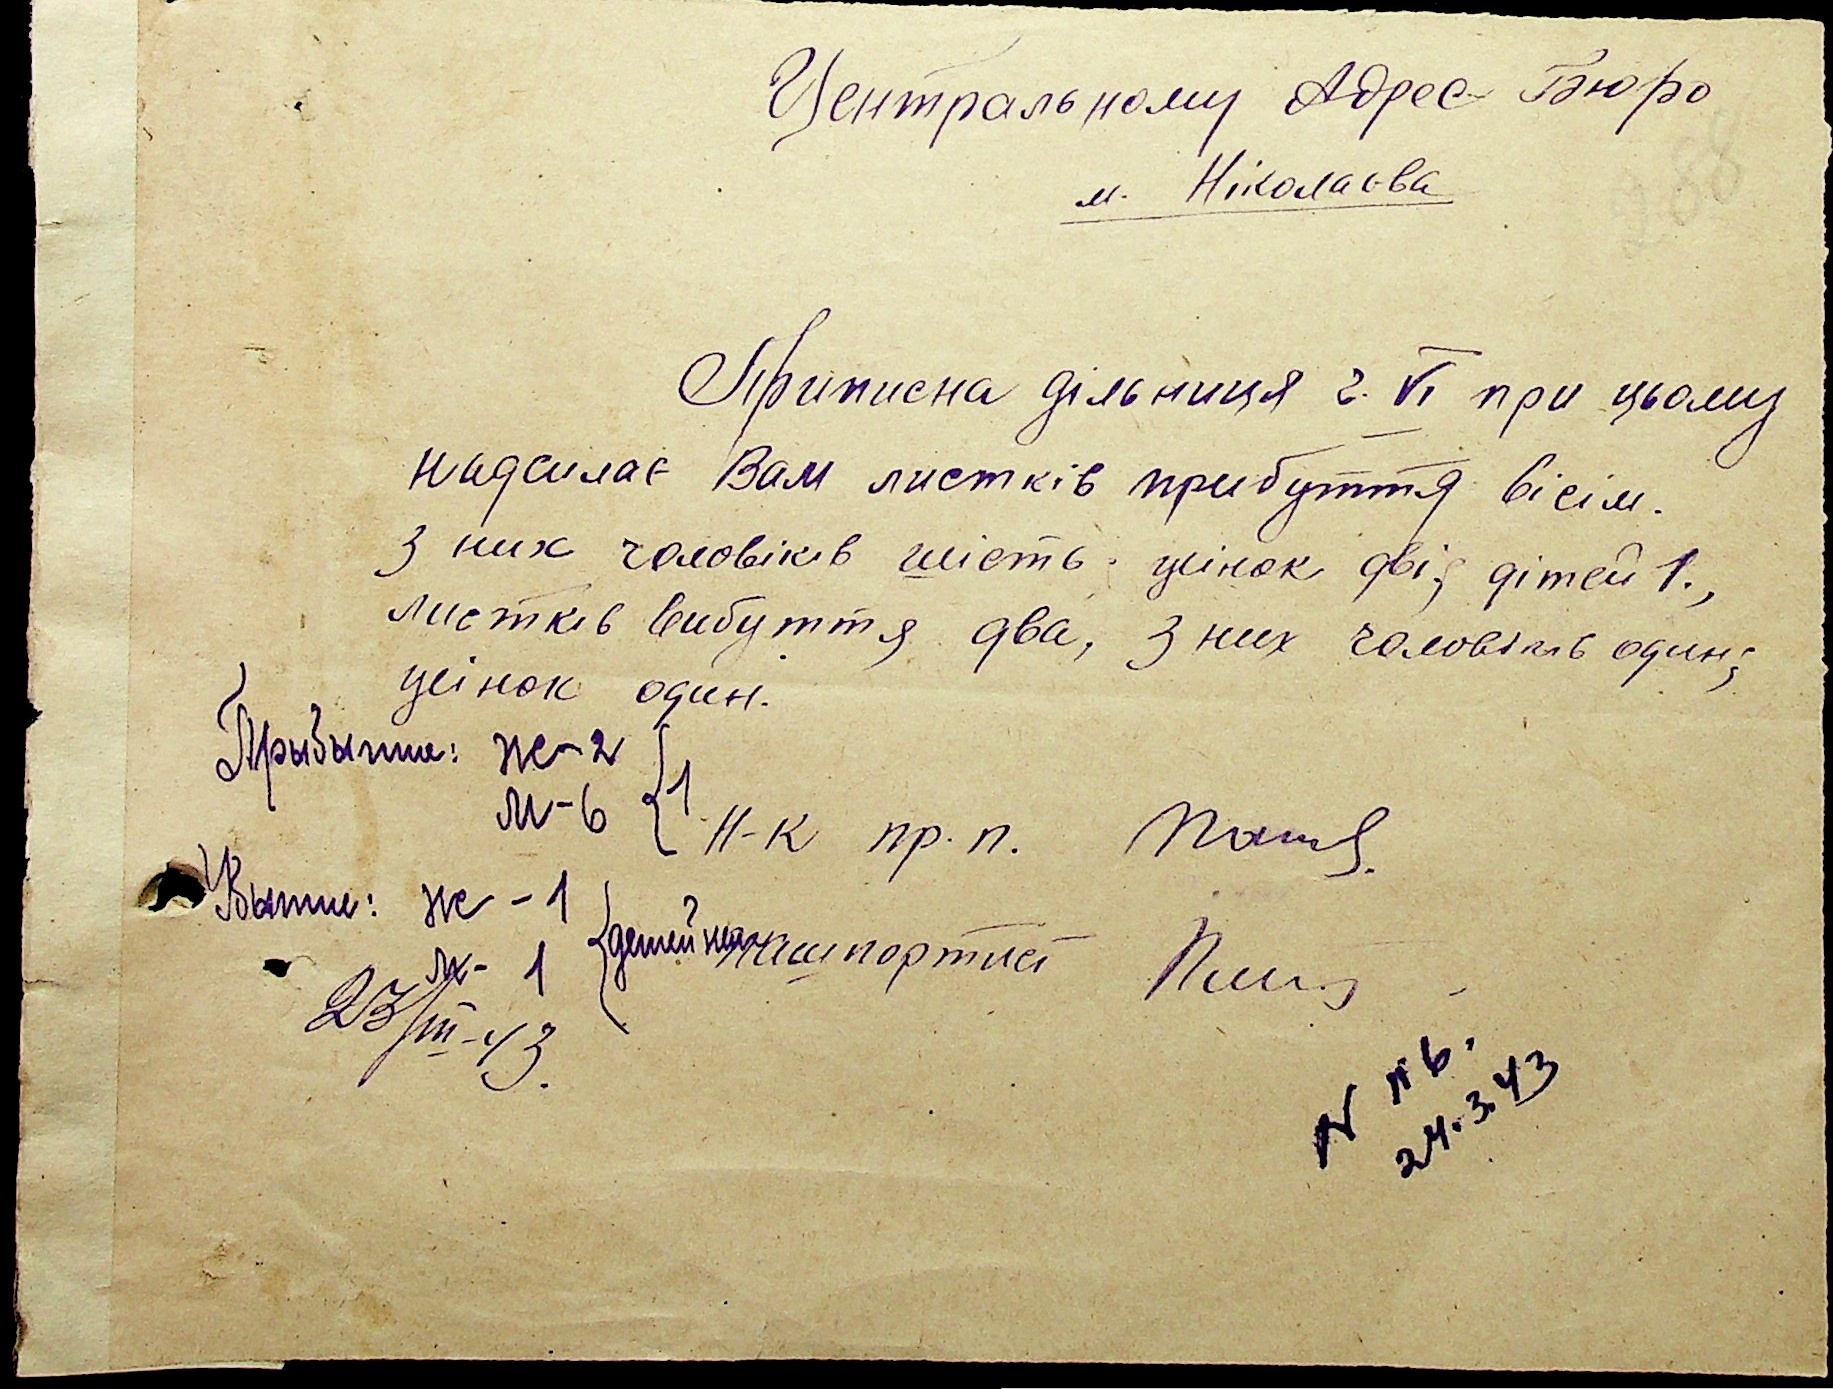 Центральному Адрес-Бюро
м. Ніколаєва
288
Приписна дільниця ч. VI при цьому
надсилає Вам листків прибуття вісім.
З них чоловіків шість. жінок дві; дітей 1.,
листків вибуття два, з них чоловіків один;
жінок один.
Прыбытие: ж-2
м-6 {1
Н-к пр. п.
Вытие: ж-1
м-1 {детей нет
пашпортист
23/III-43.
24.3.43